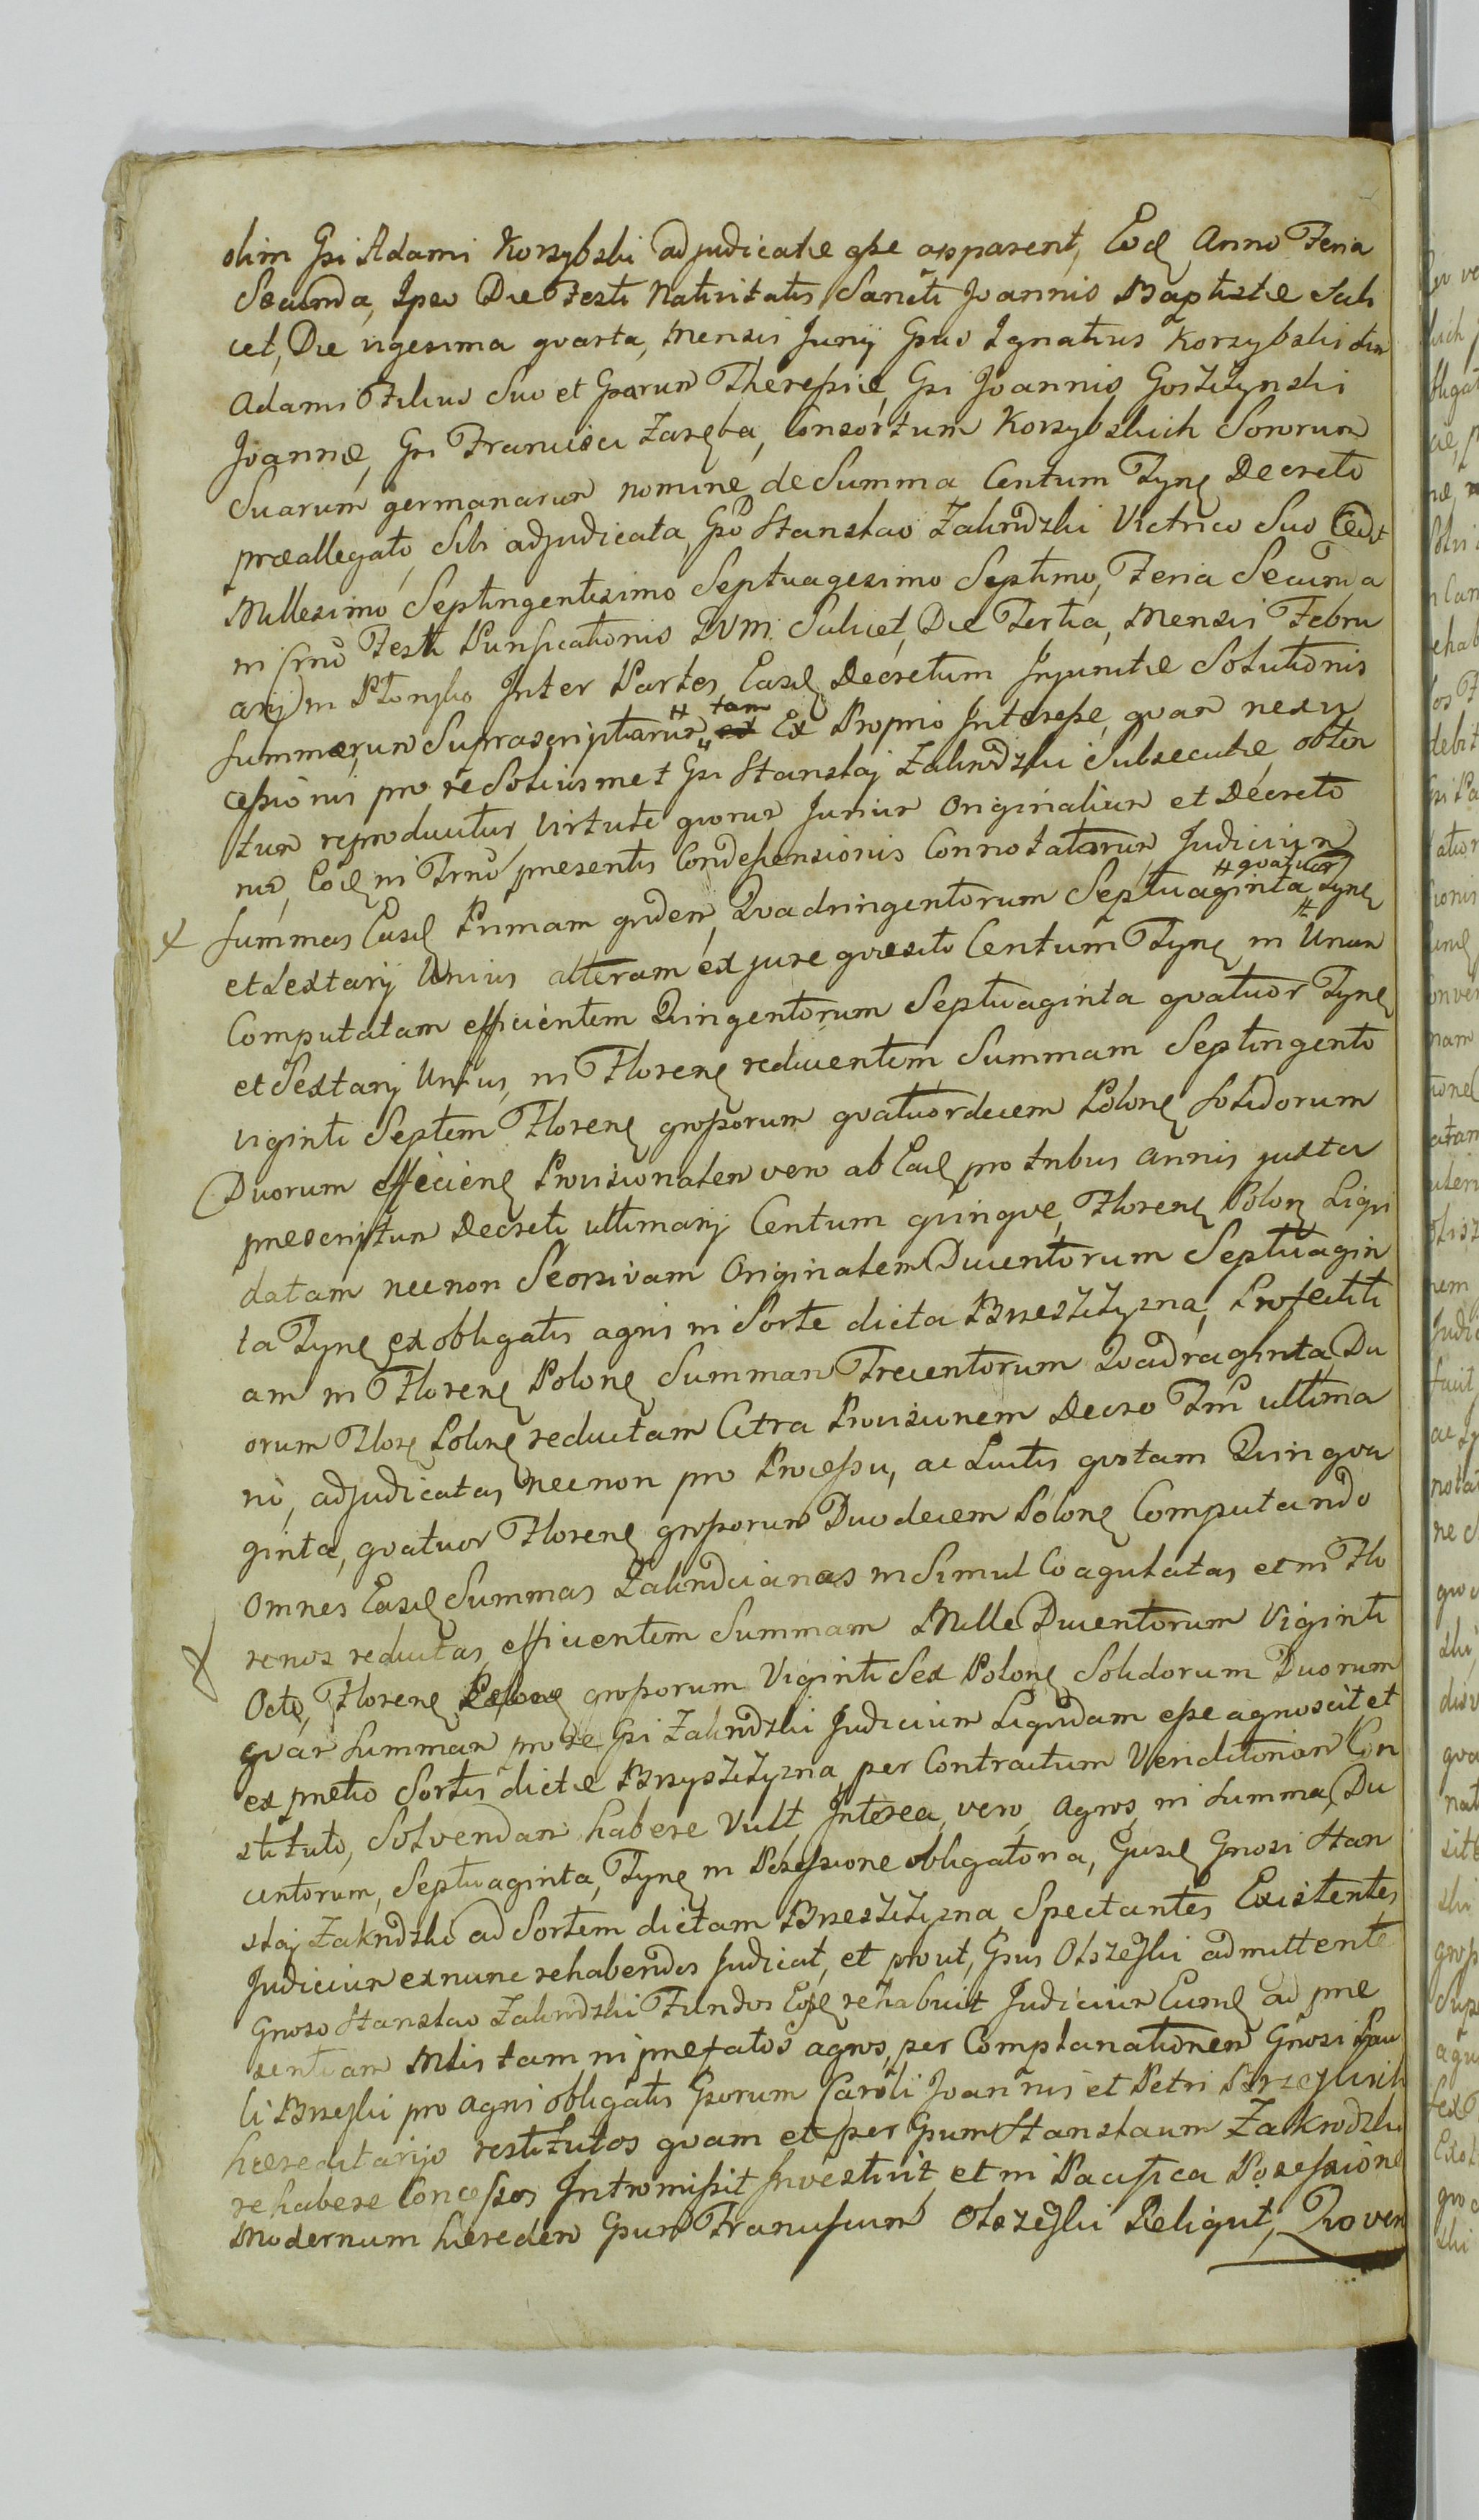 olim Gsi Adami Korzybski adjudicatæ gse apparent, Eod Anno Feria
Secunda, Ipso Die Festi Nativitatis Sancti Joannis Baptistæ Scili
cet, Die vigesima qvarta, Mensis Junij Gsus Ignatius Korzybski olim
Adami Filius Suo et Gsarum Theressiæ, Gsi Joannis Gostkowski
Joannæ, Gsi Francisci Zaręba, Consortum Korzybskich Sororum
Suarum germanarum nomine, de Summa Centum Tynf Decreto
præallegato, Sibi adjudicata, Gso Stanslao Zakrodzki Victrico Suo Cedit
Millesimo Septingentesimo Septuagesimo Septimo, Feria Secunda
in Crno Festi Purificationis BVM. Scilicet, Die Tertia, Mensis Febru
arij in Inter Partes Easd Decretum Injunctæ Solutionis
Summarum Suprascriptarum, tam Ex Proprio Interesse, qvam nexu
cessionis pro re Soliusmet Gsi Stanslaj Zakrodzki Subsecutæ, obten
tum reproducitur, virtute qvorum Jurium Originalium et Decreto
rum, Eod in Trno præsentis Condescensionis Connotatorum, Judicium
Summas Easd Primam qvidem, Qvadringentorum Septuaginta qvatuor Tynf
et Sextarij Unius alteram ex jure qvæsito Centum Tynf in Unum
Computatam efficientem Qvingentorum Septuaginta qvatuor Tynf
et Sextarij Unius, in Floren reducentem Summam Septingento
viginti Septem Floren grossorum qvatuordecem Polon Solidorum
Duorum efficien Provisionalem vero ab Ead pro tribus annis juxta
præscriptum Decreti ultimarij Centum qvinqve, Floren Polon Liqvi
datam necnon Seorsivam Originalem Ducentorum Septuagin
ta Tynf ex obligatis agris in Sorte dicta Brzeszczyzna, Profectiti
am in Floren Polon Summam Trecentorum Qvadraginta Du
orum Flore Polon reductam Citra Provisionem Decreo Tni ultima
rio, adjudicatas necnon pro Processu, ac Luitis qvotam Qvinqva
ginta, qvatuor Floren grossorum Duodecem Polon Computando
Omnes Easd Summas Zakrodcianas in Simul Coagulatas et in Flo
renos reductas, efficientem Summam Mille Ducentorum Viginti
Octo, Floren grossorum Viginti Sex Polon Solidorum Duorum
qvam Summam pro re Gsi Zakrodzki Judicium Liqvidam esse agnoscit, et
ex pretio Sortis dictæ Brzyszczyzna per Contractum Venditorium Con
stituto, Solvendam habere Vult, Interea, vero, Agros, in Summa, Du
centorum, Septuaginta, Tynf in Possessione obligatoria, Ejusd Gnosi Stan
slaj Zakrodzki ad Sortem dictam Brzeszczyzna, Spectantes Existentes
Judicium exnunc rehabendos Judicat, et prout, Gsus Olszeski admittente
Gnoso Stanslao Zakrodzki Fundos Eosd rehabuit Judicium Eumd ad præ
sentiam Mlis tam in præfatos agros, per Complanationem Gnosi Pau
li Brzeski pro agris obligatis Gsorum Caroli Joannis et Petri Brzeskich
hæreditarijs restitutos qvam et per Gsum Stanslaum Zakrodzki
rehabere Concessos Intromissit Investivit et in Pacifica Possessione
Modernum hæredem Gsum Franciscum Olszeski Reliqvit, Qvo vero